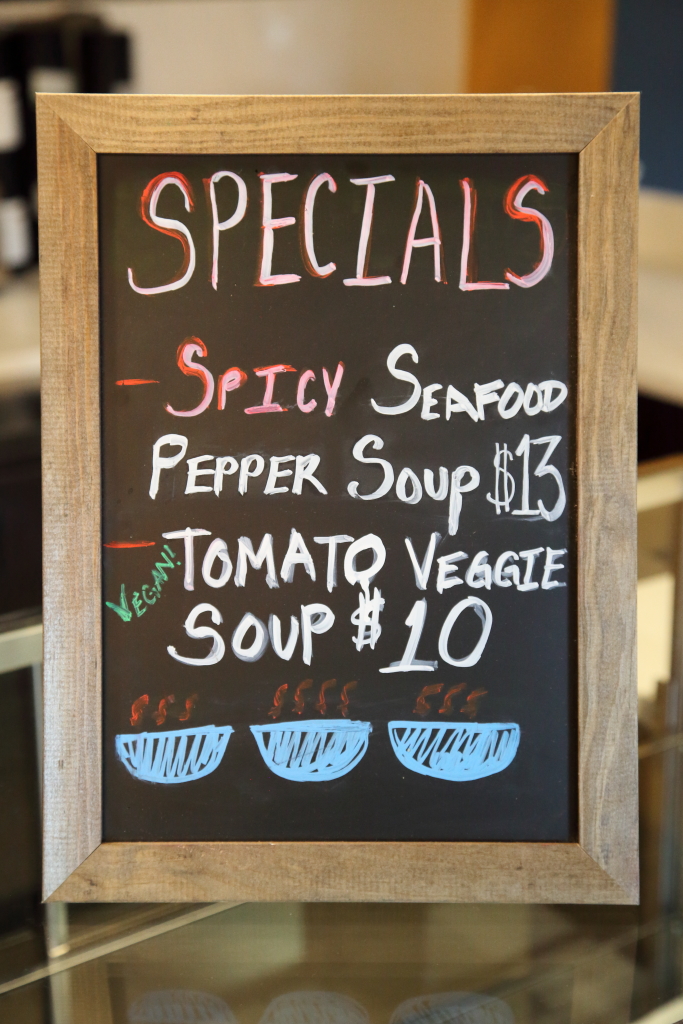 SPECIALS
- SPICY SEAFOOD
PEPPER SOUP $13
- TOMATO VEGGIE
VEGAN!
SOUP $10